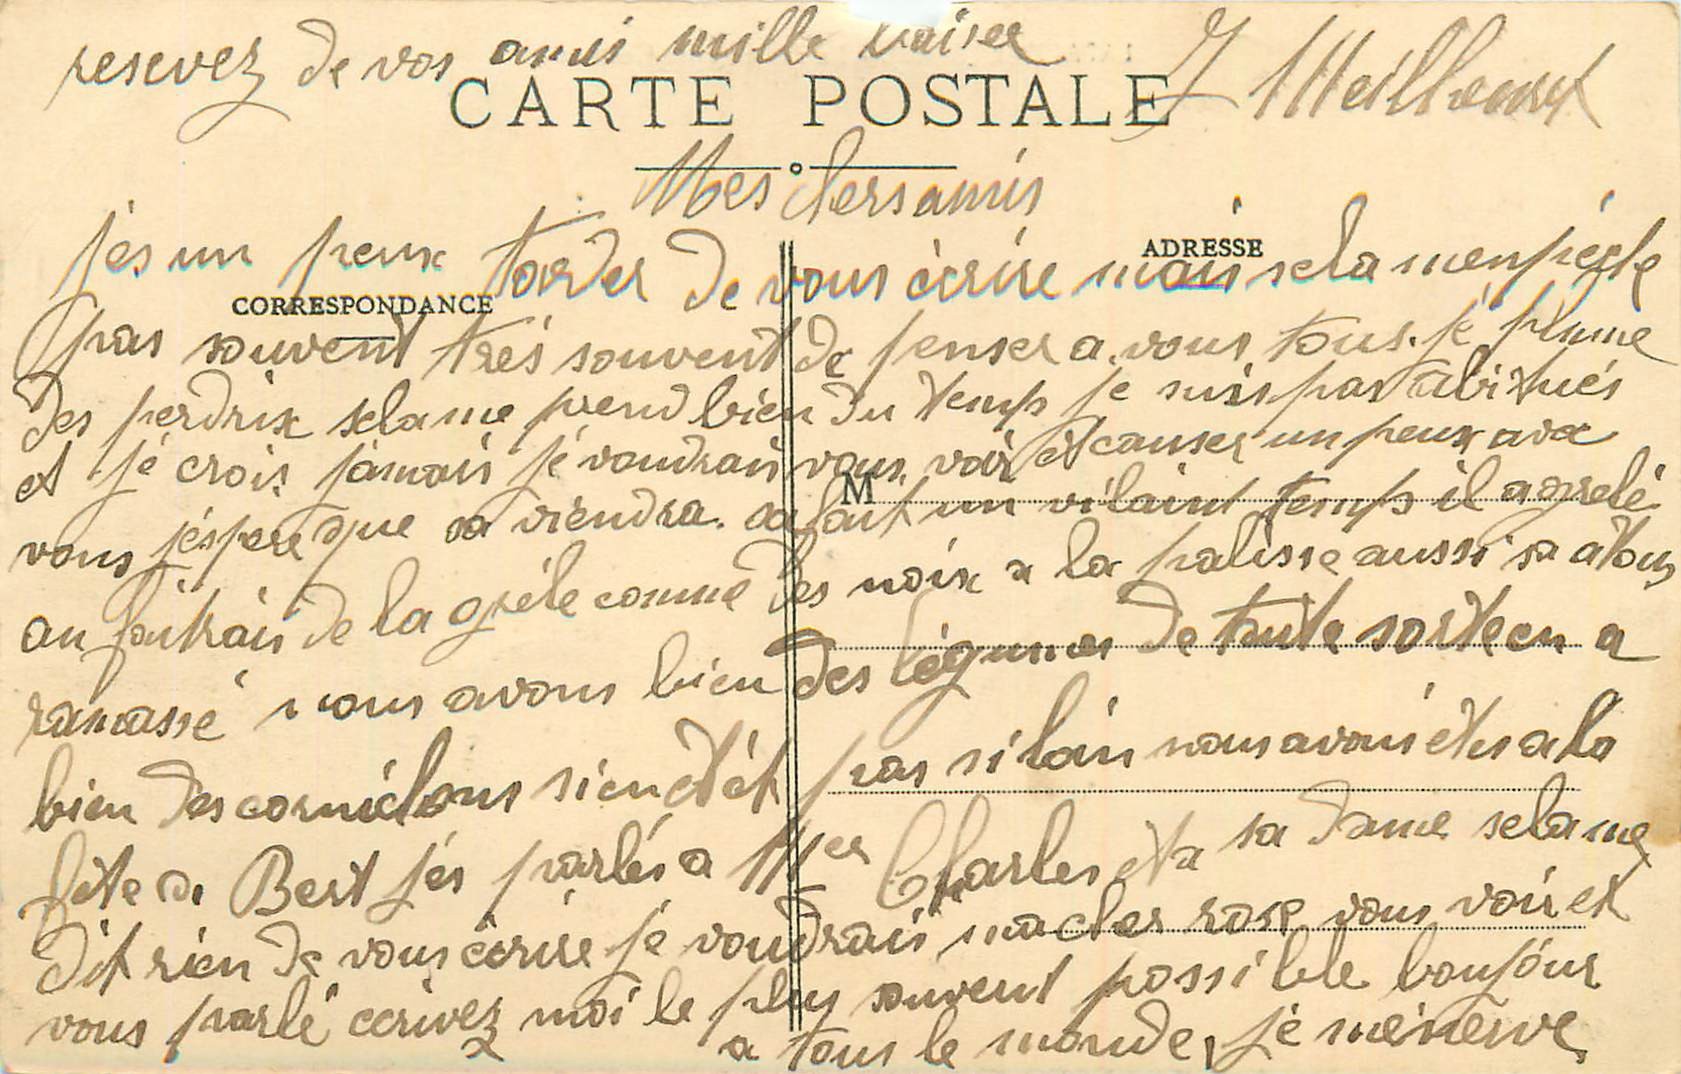 resevez de vos amis mille baiser
CARTE POSTALE
Mes chers amis
ADRESSE
jes un peux tarder de vous écrire mais sela menpégle
CORRESPONDANCE
pas souvent trés souvent de penser a vous tous. je plume
des perdrix sela me prend bien du temps je suis pas abitués
et jé crois jamais jé voudrais vous voir et causer un peux avec
M
vous jéspere que sa viendra. sa fait un vilaint temps il a grelé
au de la gréle comme des noix a la palisse aussi sa a tous
ramassé nous avons bien des légumes de toute sorte on a
bien des cornichons si en etét pas si loin nous avons étés a la
féte de Bert jés parlés a Mer Charles et a sa dame sela me
dit rien de vous écrire je voudrais ma cher rose vous voir et
vous parlé ecrivez moi le plus souvent possible boujour
a tous le monde, jé ménerve